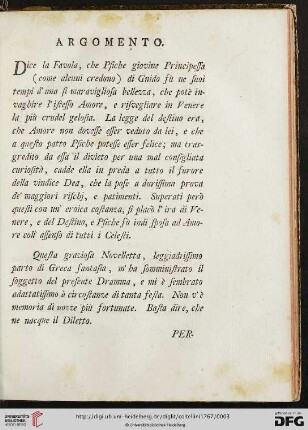 ARGOMENTO.
Dice la Favola, che Psiche giovine Principessa
(come alcuni credono) di Gnido fù ne suoi
tempi d'una sì maravigliosa bellezza, che potè in-
vaghire l'istesso Amore, e risvegliare in Venere
la più crudel gelosia. La legge del destino era,
che Amore non dovesse esser veduto da lei, e che
a questo patto Psiche potesse esser felice; ma tras-
gredito da essa il divieto per una mal consigliata
curiosità, cadde ella in preda a tutto il furore
della vindice Dea, che la pose a durissima prova
de' maggiori rischj, e patimenti. Superati però
questi con un' eroica costanza, si placò l'ira di Ve-
nere, e del Destino, e Psiche fù indi sposa ad Amo-
re coll' assenso di tutti i Celesti.
Questa graziosa Novelletta, leggiadrissimo
parto di Greca fantasia, m' ha somministrato il
soggetto del presente Dramma, e mi è sembrato
adattatissimo à circostanze di tanta festa. Non v'è
memoria di nozze più fortunate. Basta dire, che
ne nacque il Diletto.
PER-
UNIVERSITÄTS-
BIBLIOTHEK
HEIDELBERG
http://digi.ub.uni-heidelberg.de/diglit/coltellini1767/0003
© Universitätsbibliothek Heidelberg
gefördert durch die
DFG